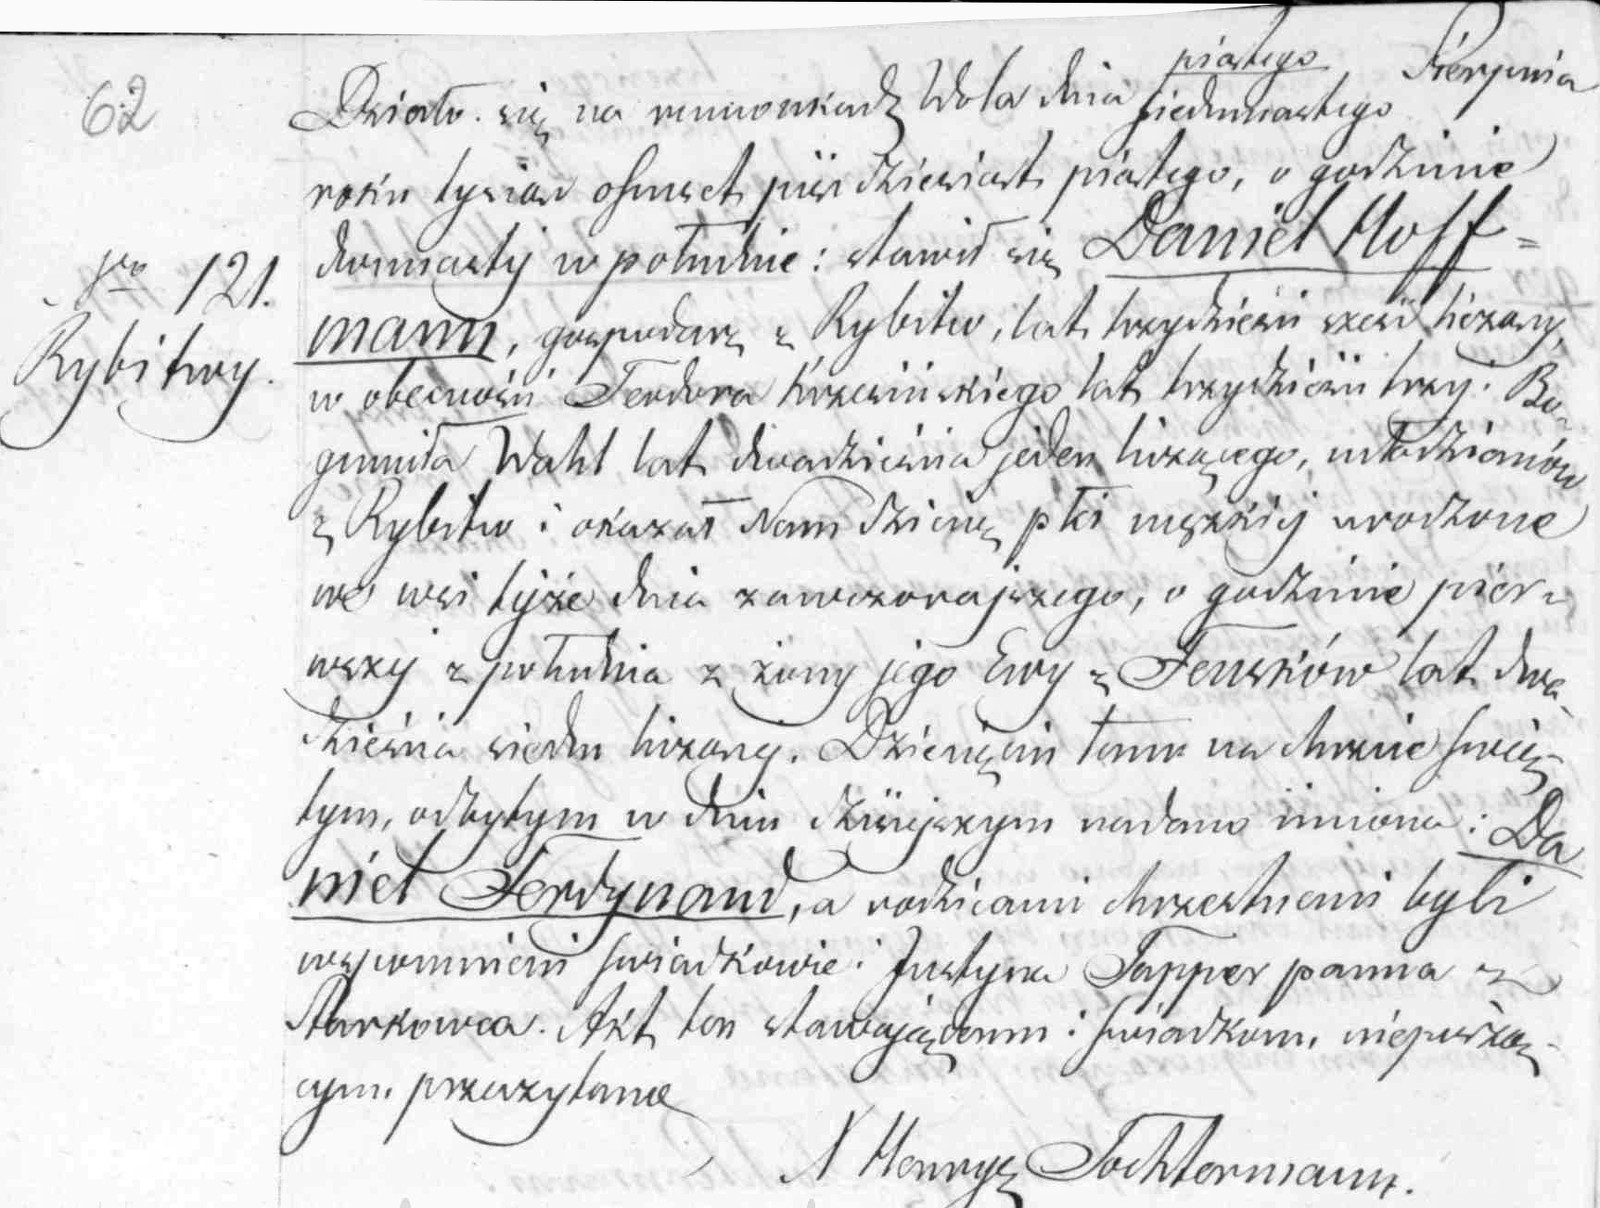 62
piątego Sierpnia
Działo się na rumunkach Wola dnia siedmnastego
roku tysiąc ośmset pięćdziesiąt piątego, o godzinie
dwunastej w południe: stawił się Daniel Hoff=
Nro 121.
mann, gospodarz z Rybitw, lat trzydzieści sześć liczący,
Rybitwy.
w obecności Teodora Krzesińskiego lat trzydzieści trzy i Bo-
gumiła Wahl lat dwadzieścia jeden liczącego, młodzianów
z Rybitw i okazał Nam dziecię płci męzkiéj urodzone
we wsi téjże dnia zawczorajszego, o godzinie pier-
wszéj z południa z żony jego Ewy z Fensków lat dwa-
dzieścia siedm liczącej. Dziecięciu temu na chrzcie świę-
tym, odbytym w dniu dzisiejszym nadano imiona: Da
niel Ferdynand, a rodzicami chrzestnemi byli
wspomnieni świadkowie i Justyna Tapper panna z
Starkowca. Akt ten stawającemu i świadkom, niepiśmią-
cym, przeczytano
X Henryk Tochtermann.